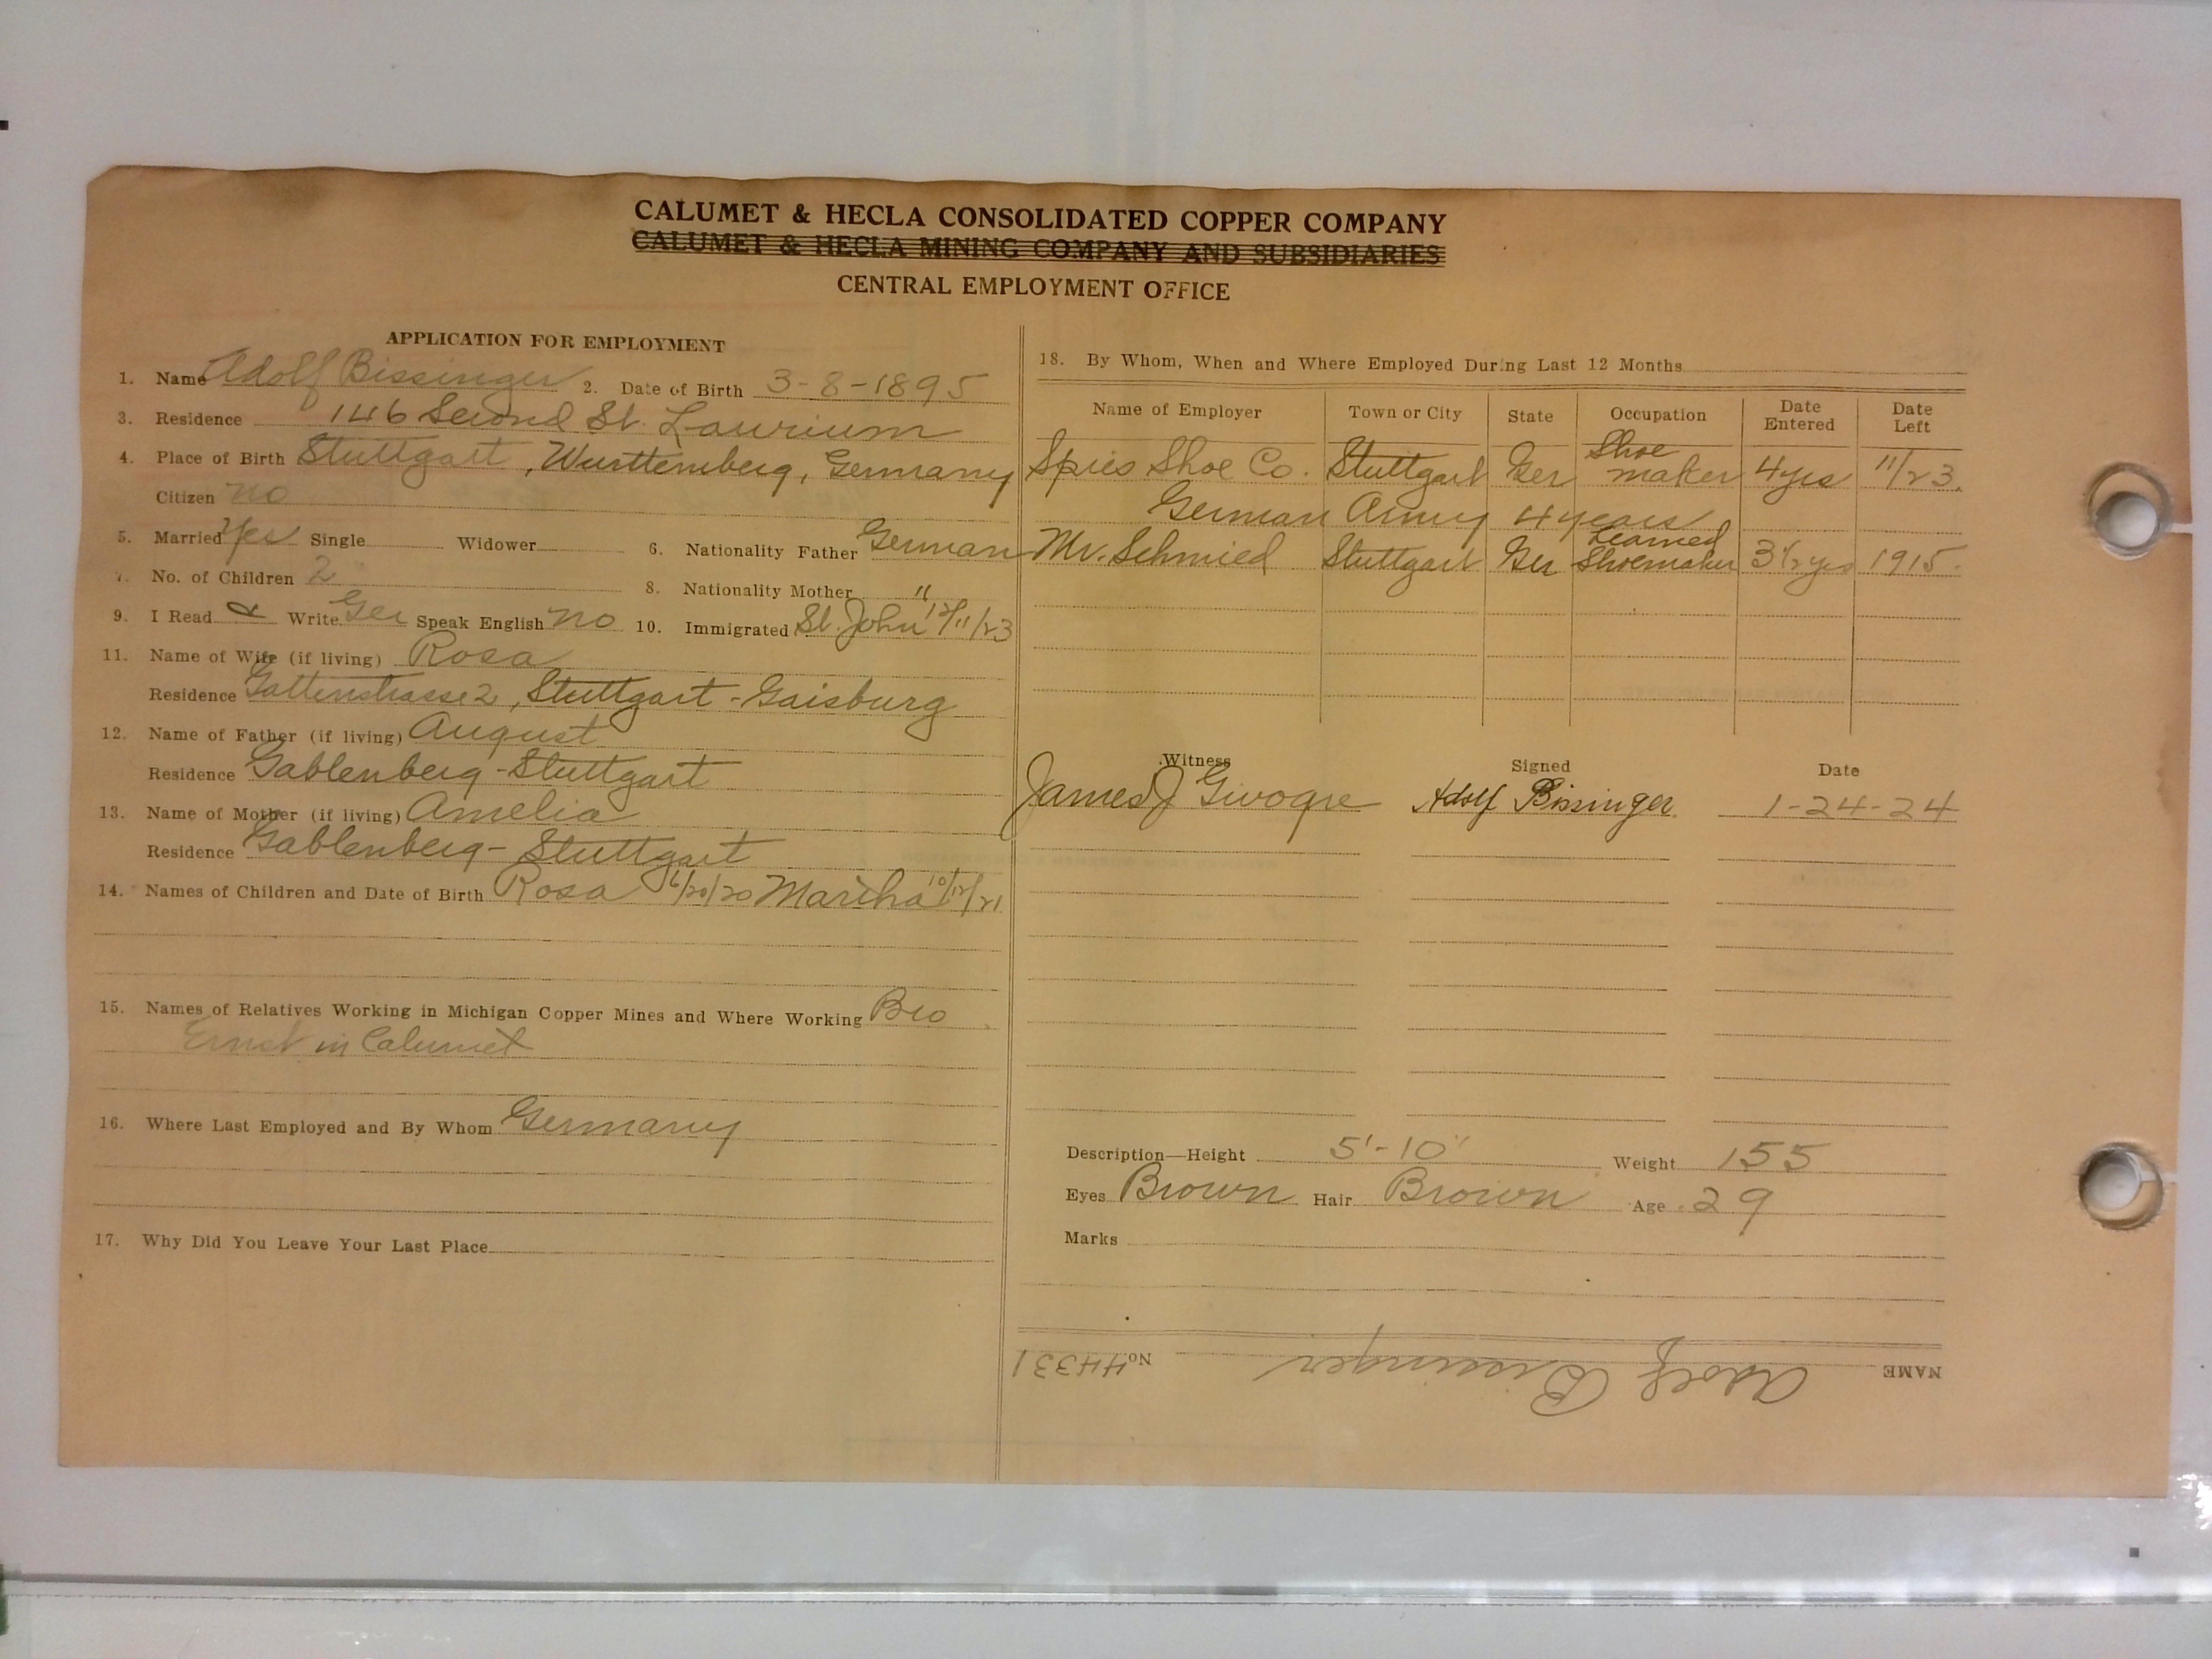 CALUMET & HECLA CONSOLIDATED COPPER COMPANY
CALUMET & HECLA MINING COMPANY AND SUBSIDIARIES
CENTRAL EMPLOYMENT OFFICE
APPLICATION FOR EMPLOYMENT
1. Name Adolf Bissinger 2. Date of Birth 3-8-1895
3. Residence 146 Second St. Laurium
4. Place of Birth Stuttgart, Wurttemberg, Germany
Citizen no
5. Married Yes Single Widower 6. Nationality Father German
7. No. of Children 2 8. Nationality Mother "
9. I Read & Write Ger Speak English no 10. Immigrated St. John 12/11/23
11. Name of Wife (if living) Rosa
Residence 2, Stuttgart-Gaisburg
12. Name of Father (if living) August
Residence Gablenberg-Stuttgart
13. Name of Mother (if living) Amelia
Residence Gablenberg-Stuttgart
14. Names of Children and Date of Birth Rosa 6/20/20 Martha 10/12/21
15. Names of Relatives Working in Michigan Copper Mines and Where Working Bro
Ernst in Calumet
16. Where Last Employed and By Whom Germany
17. Why Did You Leave Your Last Place
18. By Whom, When and Where Employed During Last 12 Months
Name of Employer Town or City State Occupation Date Entered Date Left
Spies Shoe Co. Stuttgart Ger Shoe maker 4 yrs 11/23.
German Army 4 years
Mr. Schmied Stuttgart Ger Learned Shoemaker 3 1/2 yrs 1915.
Witness Signed Date
James J Adolf Bissinger. 1-24-24
Description—Height 5'-10" Weight 155
Eyes Brown Hair Brown Age 29
Marks
NAME Adolf Bissinger No. 44331